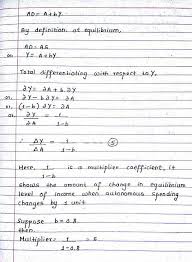 AD = A + bY
By definition at equilibrium,
AD = AS
or, Y = A + bY
Total differentiating with respect to Y,
∂Y = ∂A + b ∂Y
or, ∂Y - b ∂Y = ∂A
or, (1-b) ∂Y = ∂A
or, ∂Y/∂A = 1/1-b
∴ ΔY/ΔA = 1/1-b — (5)
Here, 1/1-b is a multiplier coefficient, it
shows the amount of change in equilibrium
level of income when autonomous spending
changes by 1 unit
Suppose b = 0.8
then
Multiplier = 1/1-0.8 = 5